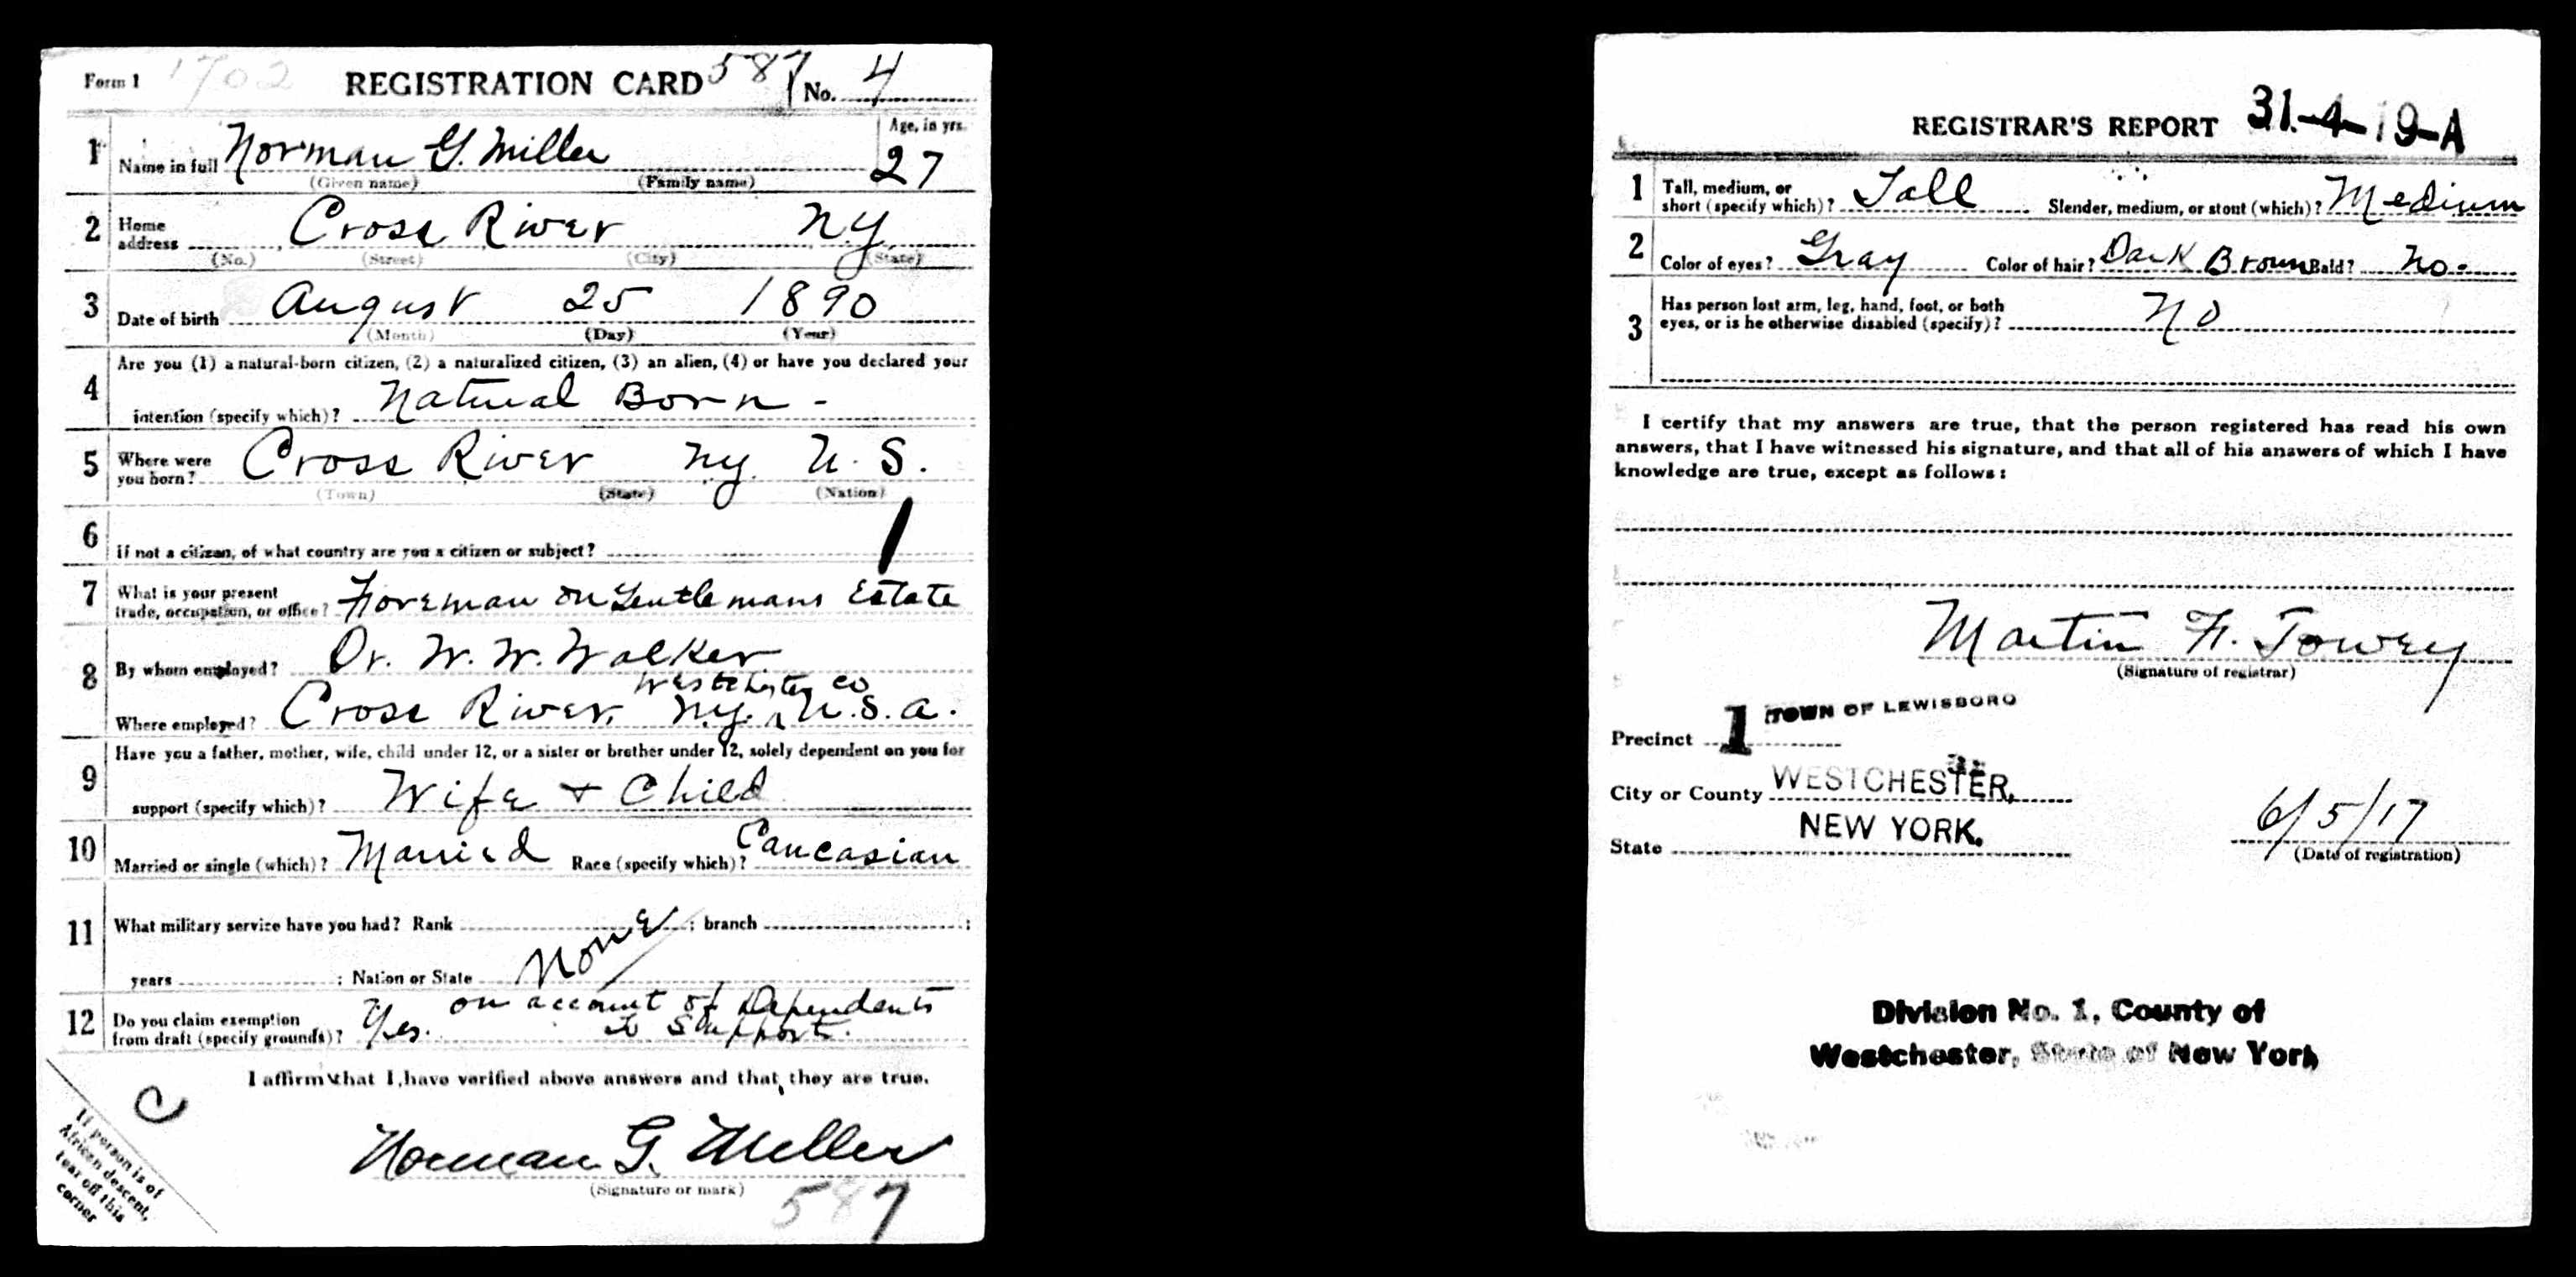 Form 1 1702 REGISTRATION CARD 587 No. 4
1 Name in full Norman G. Miller Age, in yrs. 27
(Given name) (Family name)
2 Home address Cross River N.Y.
(No.) (Street) (City) (State)
3 Date of birth August 25 1890
(Month) (Day) (Year)
4 Are you (1) a natural-born citizen, (2) a naturalized citizen, (3) an alien, (4) or have you declared your
intention (specify which)? Natural Born -
5 Where were you born? Cross River N.Y. U.S.
(Town) (State) (Nation)
6 If not a citizen, of what country are you a citizen or subject?
7 What is your present trade, occupation, or office? Foreman on Gentlemans Estate
8 By whom employed? Dr. W. W. Walker
Westchester Co
Where employed? Cross River, N.Y. ^ U.S.A.
9 Have you a father, mother, wife, child under 12, or a sister or brother under 12, solely dependent on you for
support (specify which)? Wife + Child
10 Married or single (which)? Married Race (specify which)? Caucasian
11 What military service have you had? Rank ; branch ;
years ; Nation or State None
12 Do you claim exemption from draft (specify grounds)? Yes. on account of Dependents to Support.
I affirm that I have verified above answers and that they are true.
C
Norman G. Miller
(Signature or mark)
587
If person is of
African descent,
tear off this
corner
REGISTRAR'S REPORT 31-4-19-A
1 Tall, medium, or short (specify which)? Tall Slender, medium, or stout (which)? Medium
2 Color of eyes? Gray Color of hair? Dark Brown Bald? No.
3 Has person lost arm, leg, hand, foot, or both
eyes, or is he otherwise disabled (specify)? No
I certify that my answers are true, that the person registered has read his own
answers, that I have witnessed his signature, and that all of his answers of which I have
knowledge are true, except as follows:
Martin F. Towey
(Signature of registrar)
Precinct 1 TOWN OF LEWISBORO
City or County WESTCHESTER,
State NEW YORK.
6/5/17
(Date of registration)
Division No. 1, County of
Westchester, State of New York